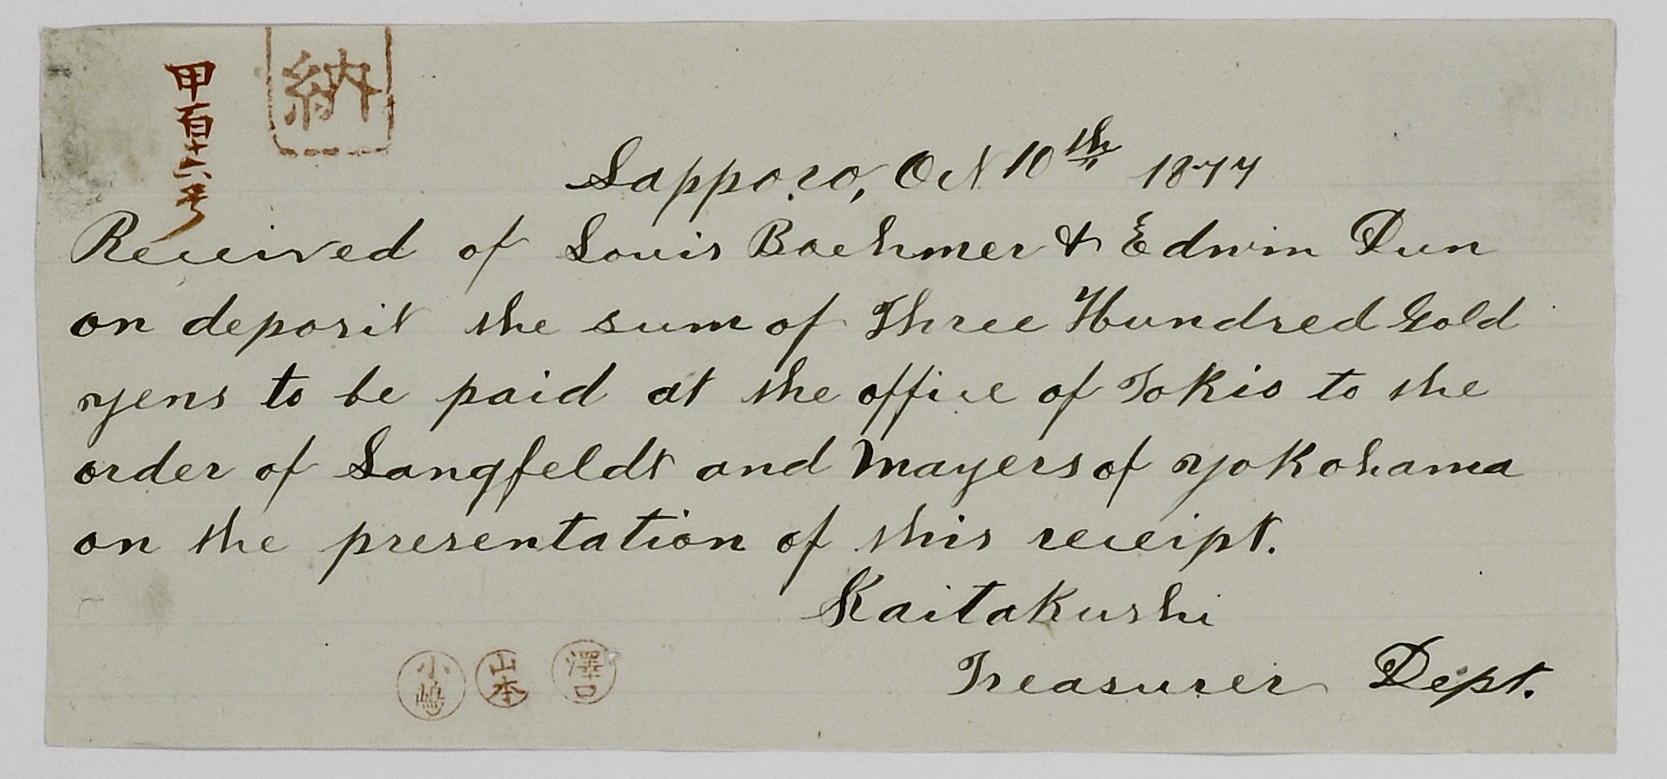 甲百十六号
納
Sapporo, Oct 10th 1877
Received of Louis Boehmer & Edwin Dun
on deposit the sum of Three Hundred Gold
yens to be paid at the office of Tokio to the
order of Langfeldt and Mayers of Yokohama
on the presentation of this receipt.
Kaitakushi
Treasurer Dept.
小嶋 山本 澤口